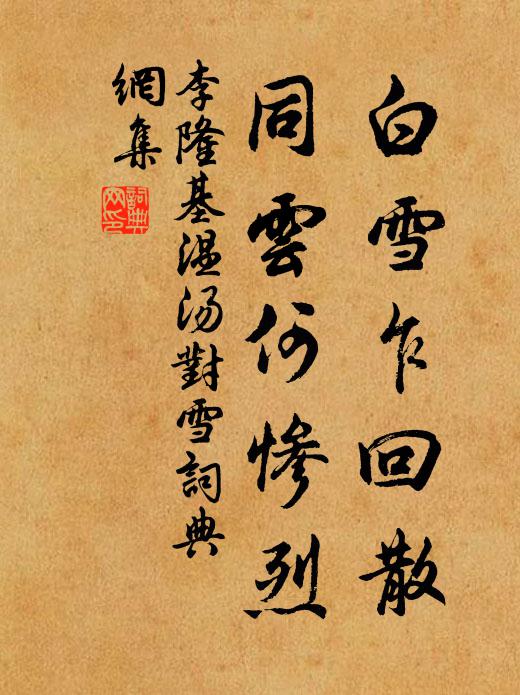 白雪乍回散
同雲何慘烈
李隆基温汤對雪詞典
網集
詞典
网印